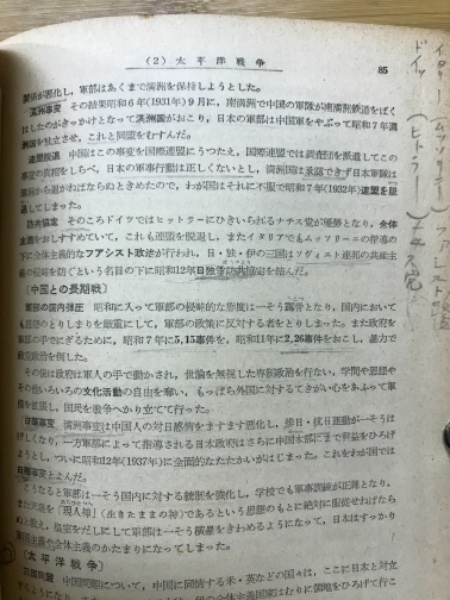 (2) 太平洋戦争
85
関係が悪化し，軍部はあくまで満洲を保持しようとした。
満洲事変 その結果昭和6年(1931年)9月に，南満洲で中国の軍隊が南満洲鉄道をばく
はしたのがきっかけとなって満洲事変がおこり，日本の軍部は中国軍をやぶって昭和7年満
洲国を独立させ，これと同盟をむすんだ。
連盟脱退 中国はこの事変を国際連盟にうつたえ，国際連盟では調査団を派遣してこの
事変の真相をしらべ，日本の軍事行動は正しくないとし，満洲国は承認できず日本軍隊は
満洲から退かねばならぬときめたので，わが国はそれに不服で昭和7年(1932年)連盟を脱
退してしまった。
防共協定 そのころドイツではヒットラーにひきいられるナチス党が優勢となり，全体
主義をおしすすめていて，これも連盟を脱退し，またイタリアでもムッソリーニの指導の
下に全体主義的なファシスト政治が行われ，日・独・伊の三国はソヴィエト連邦の共産主
義の侵略を防ぐという名目の下に昭和12年日独伊防共協定を結んだ。
〔中国との長期戦〕
軍部の国内弾圧 昭和に入って軍部の侵略的な態度は一そう露骨となり，国内において
も思想のとりしまりを厳重にして，軍部の政策に反対する者をとりしまった。また政府を
軍部の手でにぎるために，昭和7年に5,15事件を，昭和11年に2,26事件をおこし，暴力で
政党政治を倒した。
その後は政府は軍人の手で動かされ，世論を無視した専制政治を行ない，学問や思想や
その他いろいろの文化活動の自由を奪い，もっぱら外国に対するてきがい心をあふって軍
備を拡張し，国民を戦争へかり立てて行った。
日華事変 満洲事変は中国人の対日感情をますます悪化し，排日・抗日運動が一そうは
げしくなり，一方軍部によって指導される日本政府はさらに中国本部にまで利益をひろげ
ようとし，ついに昭和12年(1937年)に全面的なたたかいがはじまった。これをわが国では
日華事変とよんだ。
こうなると軍部は一そう国内に対する統制を強化し，学校でも軍事訓練が正課となり，
また天皇を「現人神」（生きたままの神）であるという思想のもとに絶対に服従せねばなら
ぬと教え，皇室をだしにして軍部は一そう横暴をきわめるようになって，日本はすっかり
主義や全体主義のかたまりになってしまった。
〔太平洋戦争〕
三国同盟 中国問題について，中国に同情する米・英などの国々は，ここに日本と対立
イタリー（ムッソリーニ）ファシスト
ドイツ（ヒトラー）ナチス党